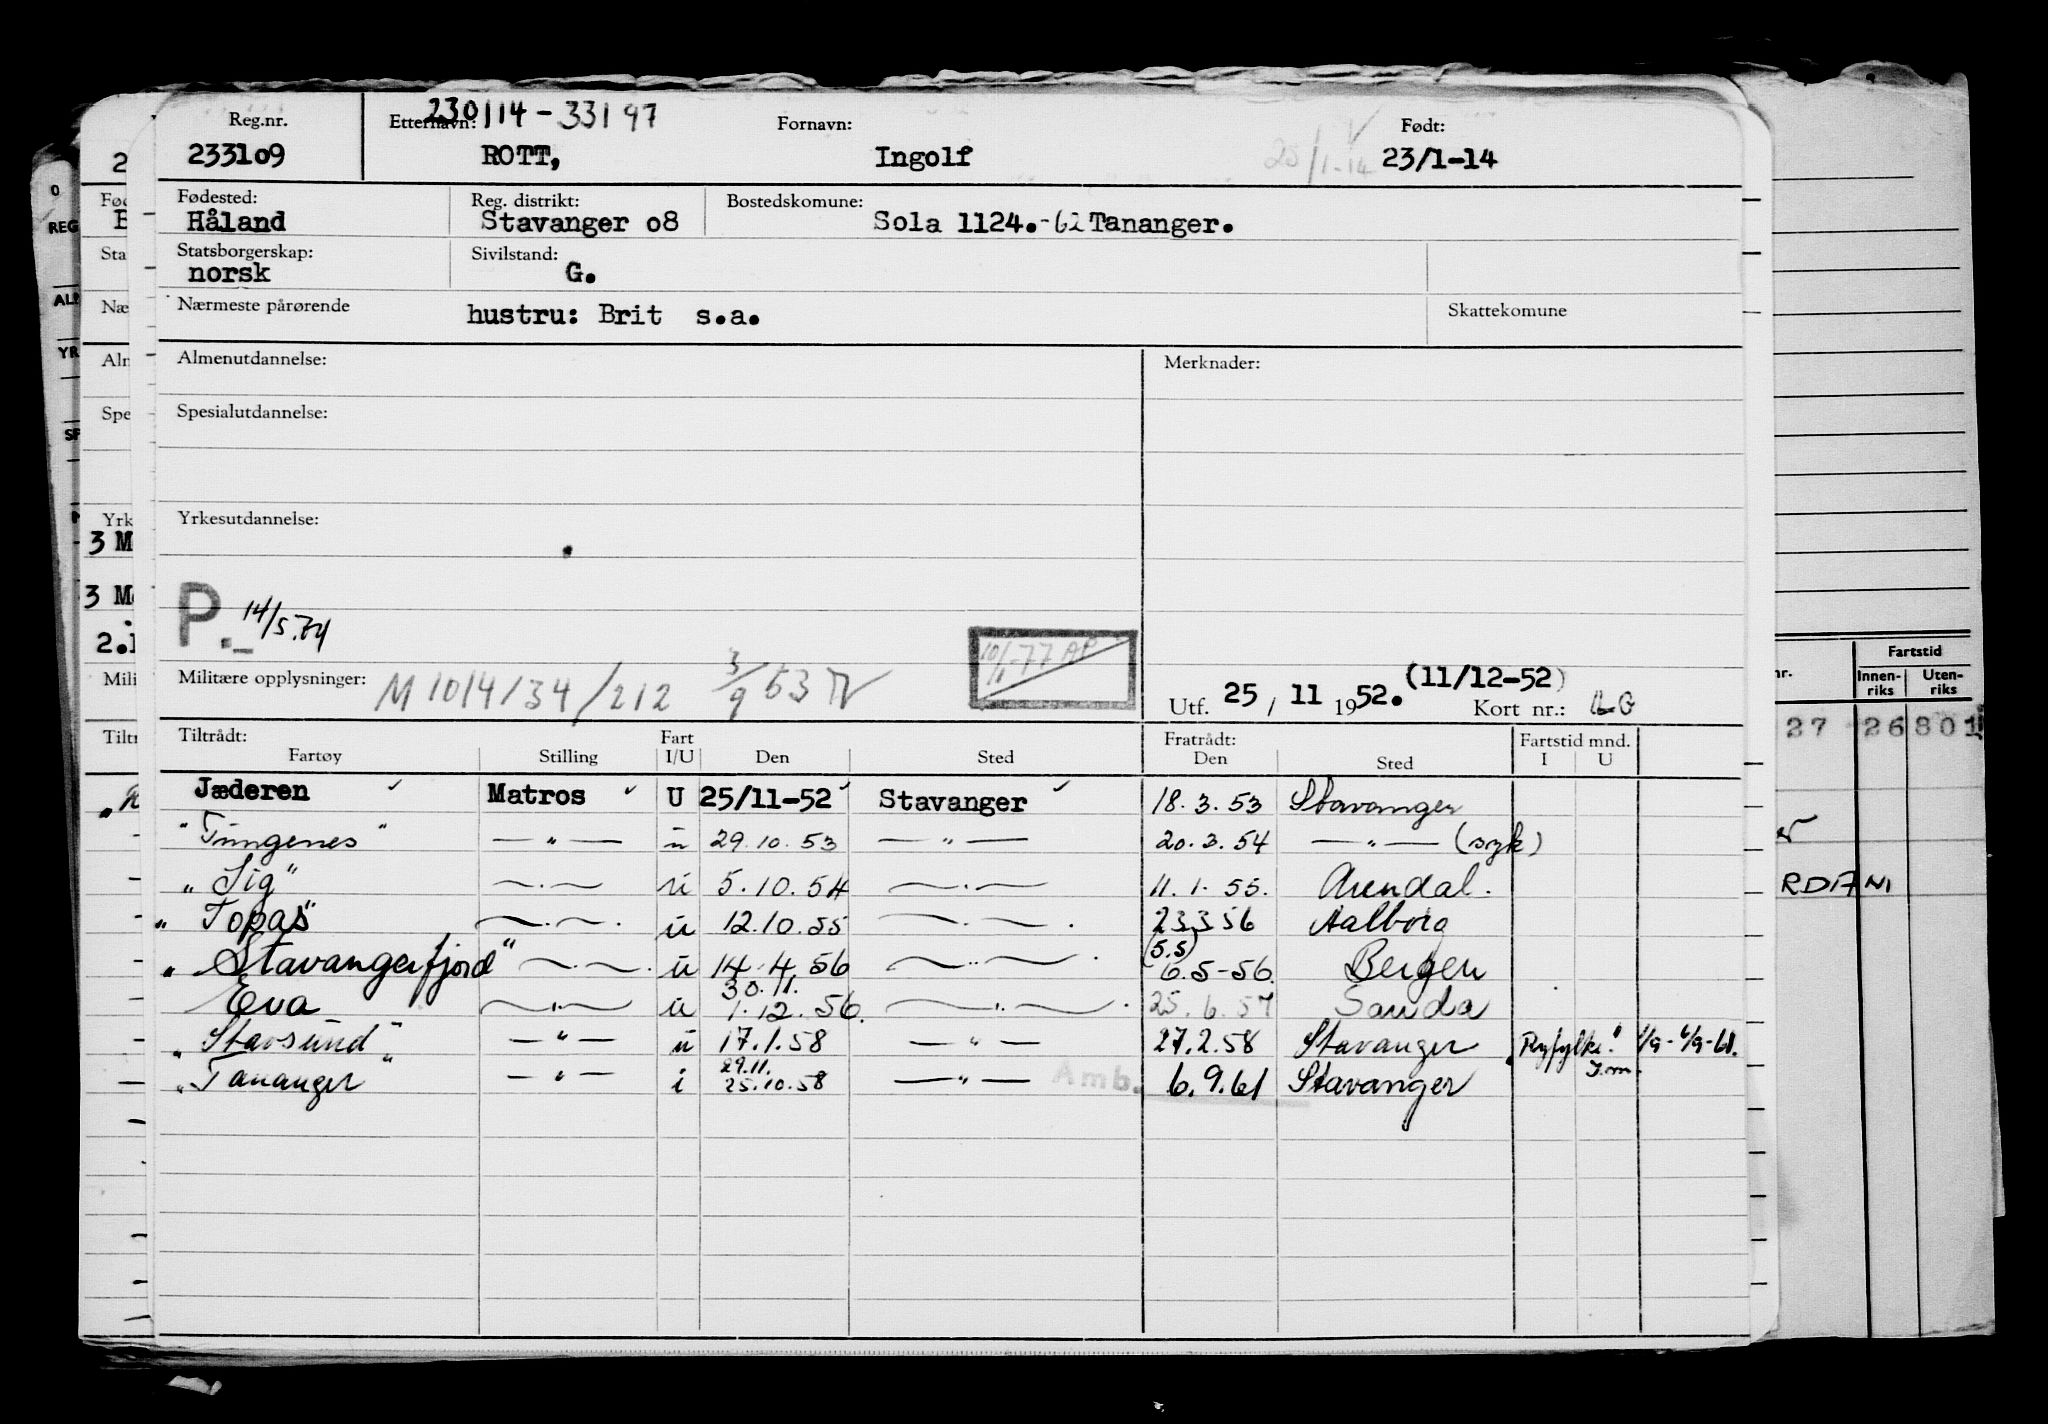 230114-33197
Reg.nr. Etternavn: Fornavn: Født:
233109 ROTT, Ingolf 25/1-14 23/1-14
Fødested: Reg. distrikt: Bostedskomune:
Håland Stavanger o8 Sola 1124.-62 Tananger.
Statsborgerskap: Sivilstand:
norsk G.
Nærmeste pårørende hustru: Brit s.a. Skattekomune
Almenutdannelse: Merknader:
Spesialutdannelse:
Yrkesutdannelse:
P.- 14/5.74
10/1-77 AP
Militære opplysninger: M 1014134/212 3/9 63
Utf. 25 / 11 1952. (11/12-52) Kort nr.: G
Tiltrådt: Fart Fratrådt: Fartstid mnd.
Fartøy Stilling I/U Den Sted Den Sted I U
Jæderen Matros U 25/11-52 Stavanger 18.3.53 Stavanger
"Tungenes" — " — u 29.10.53 — " — 20.3.54 — " — (syk)
"Sig" — " — u 5.10.54 — " — 11.1.55. Arendal.
"Topas" — " — u 12.10.55 — " — 23.3.56 Aalborg
"Stavangerfjord" — " — u 14.4.56 — " — (5.5) 6.5-56 Bergen
Eva — " — u 30.11. 1.12.56. — " — 25.6.57 Sauda
"Stavsund" — " — u 17.1.58 — " — 27.2.58 Stavanger "Ryfylke" 1/9-6/9-61. I.m.
"Tananger" — " — i 29.11. 25.10.58 — " — Amb. 6.9.61 Stavanger
Fartstid
Innen-riks Uten-riks
27 26 801
RDIANI